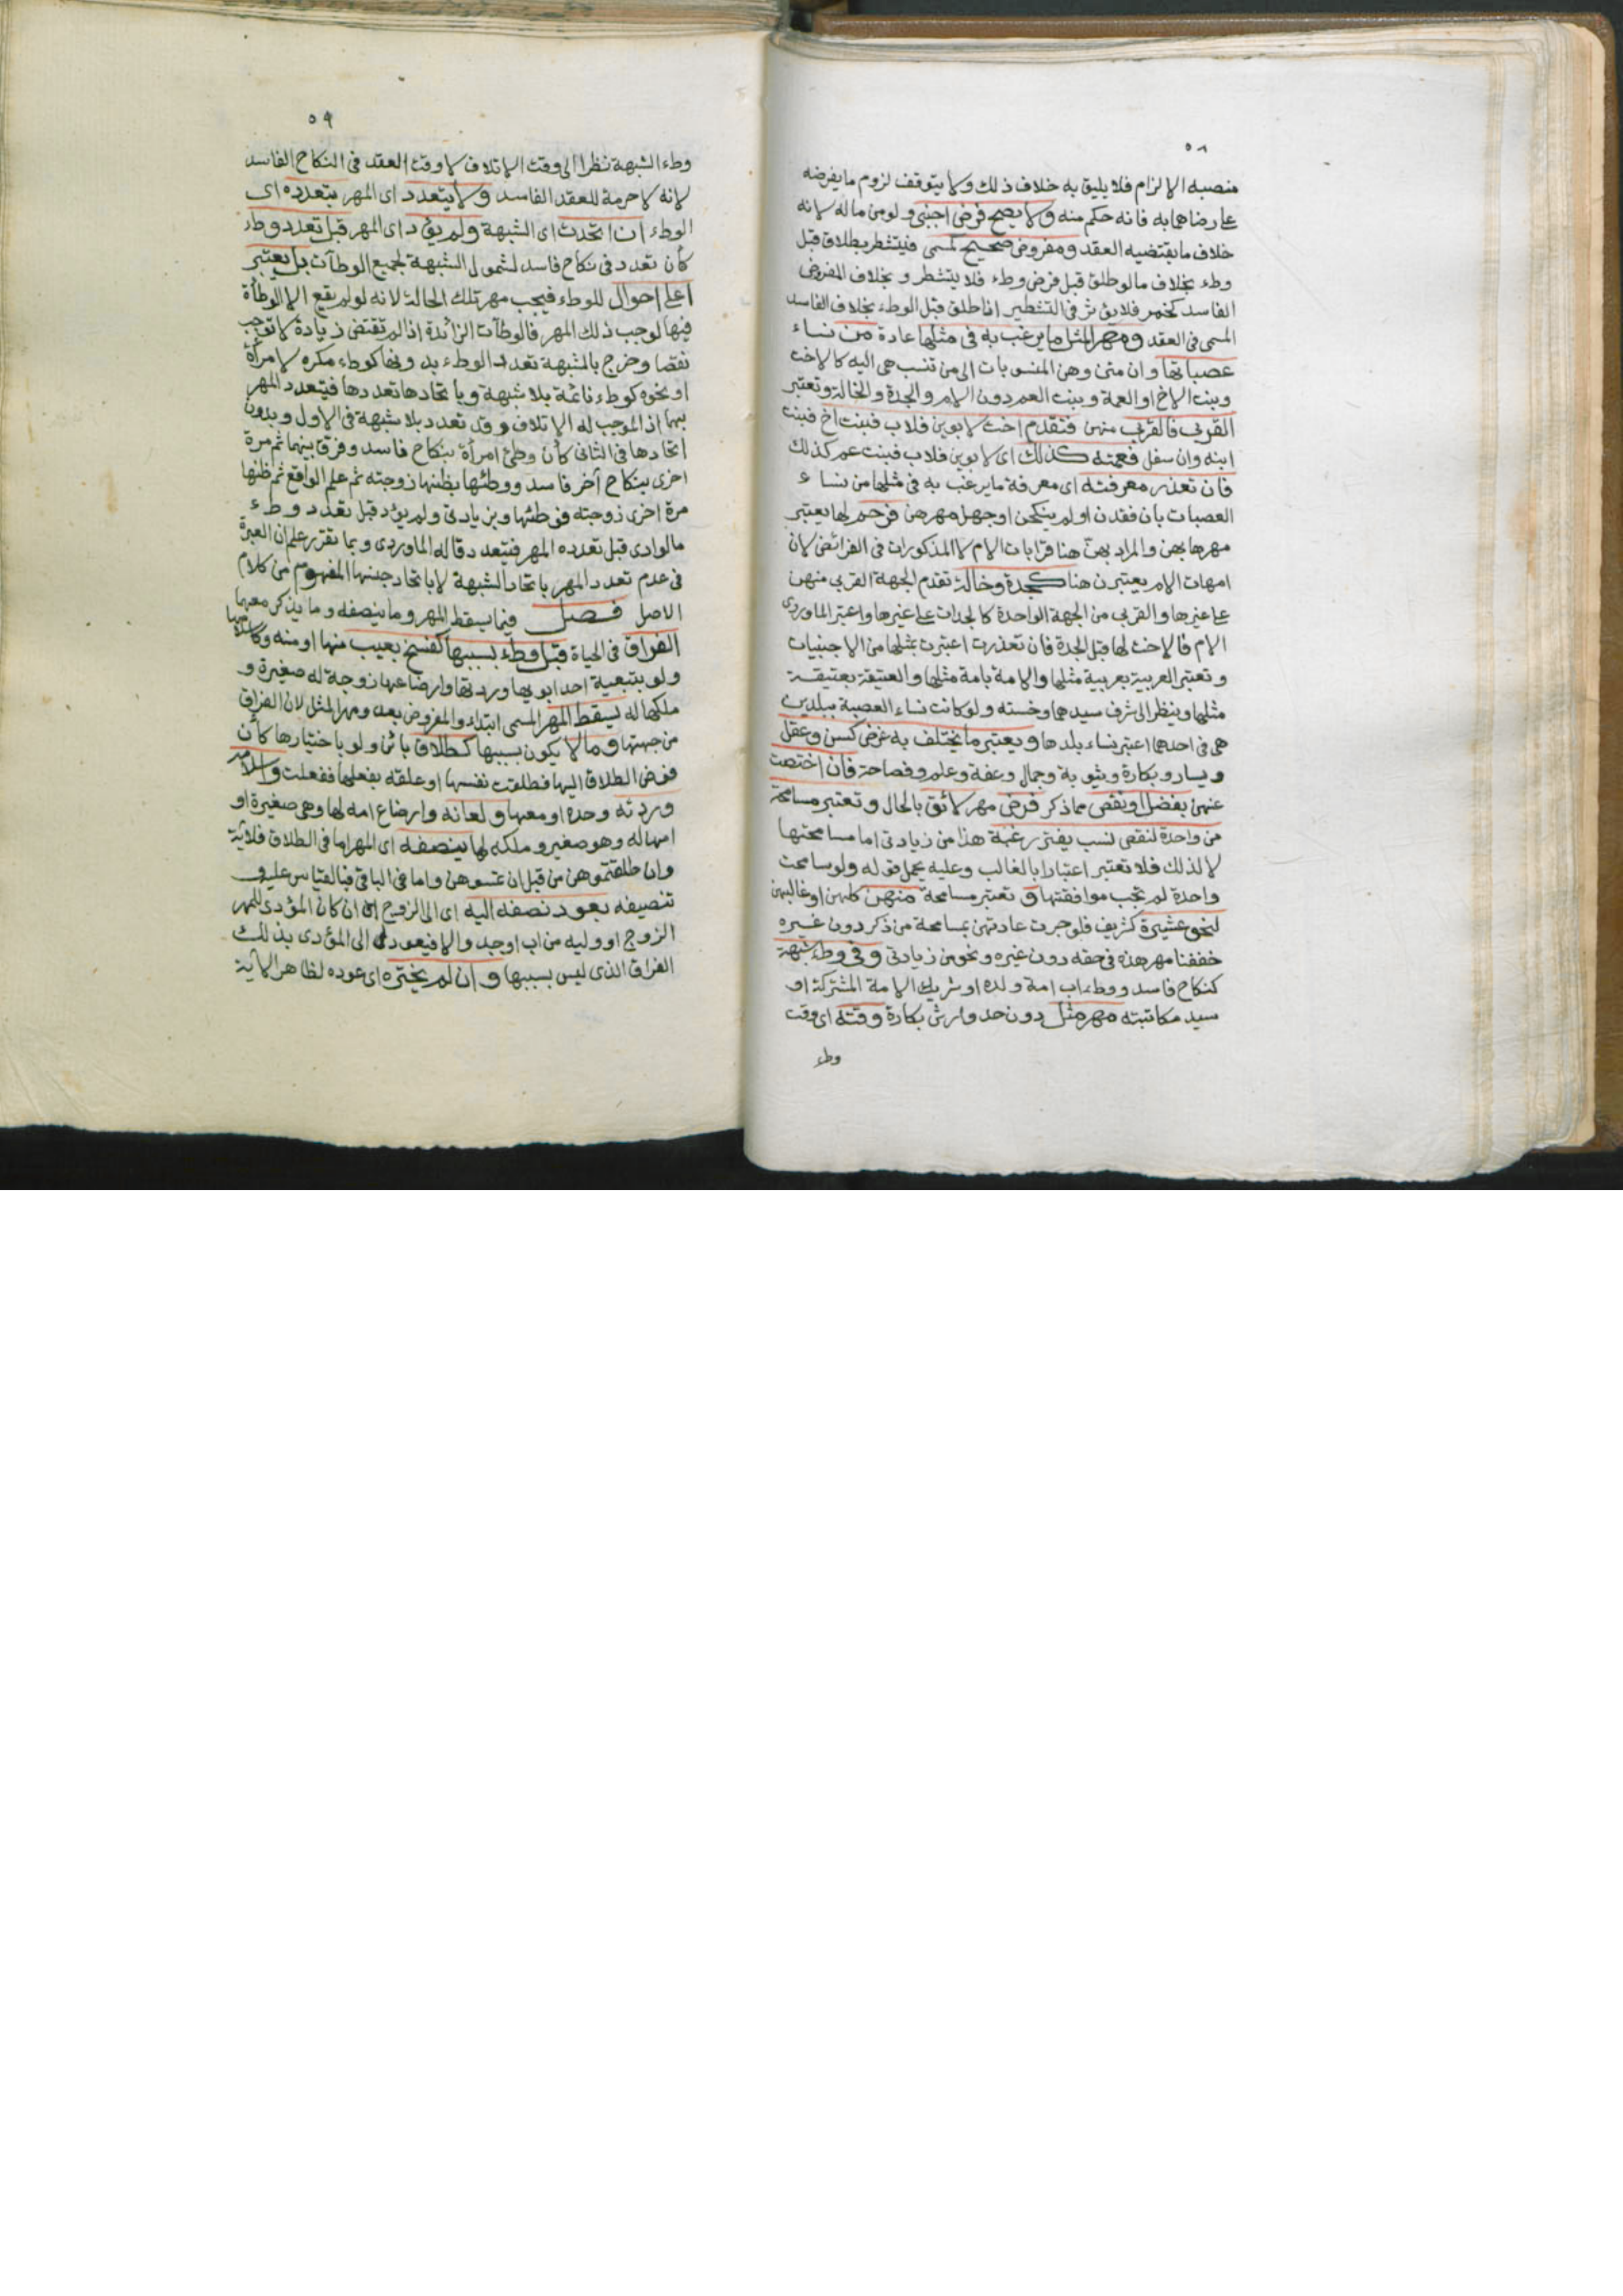 ٥٨
منصبه الالزام فلا يليق به خلاف ذلك ولا يتوقف لزوم ما يفرضه
على رضاهما به فانه حكم منه ولا يصح فرض اجنبي ولو من ماله لانه
خلاف ما يقتضيه العقد ومفروض صحيح كمسمى فيتشطر بطلاق قبل
وطء بخلاف ما لو طلق قبل فرض ووطء فلا يتشطر وبخلاف المفروض
الفاسد كخمر فلا يؤثر في التشطير اذا طلق قبل الوطء بخلاف الفاسد
المسمى في العقد ومهر المثل ما يرغب به في مثلها عادة من نساء
عصباتها وان متن وهن المنسوبات الى من تنسب هي اليه كالاخت
وبنت الاخ او العمة وبنت العم دون الام والجدة والخالة وتعتبر
القربى فالقربى منهن فتقدم اخت لابوين فلاب فبنت اخ فبنت
ابنه وان سفل فعمته كذلك اى لابوين فلاب فبنت عم كذلك
فان تعذر معرفته اى معرفة ما يرغب به في مثلها من نساء
العصبات بان فقدن او لم ينكحن او جهل مهرهن فرحم لها يعتبر
مهرها بهن والمراد بهن هنا قرابات الام لا المذكورات في الفرائض لان
امهات الام يعتبرن هنا كجدة وخالة تقدم الجهة القربى منهن
على غيرها والقربى من الجهة الواحدة كالجدات على غيرها واعتبر الماوردى
الام فالاخت لها قبل الجدة فان تعذرت اعتبرت بمثلها من الاجنبيات
وتعتبر العربية بعربية مثلها والامة بامة مثلها والعتيقة بعتيقة
مثلها وينظر الى شرف سيدهما وخسته ولو كانت نساء العصبة ببلدين
هي في احدهما اعتبر نساء بلدها ويعتبر ما يختلف به غرض كسن وعقل
ويسار وبكارة وثيوبة وجمال وعفة وعلم وفصاحة فان اختصت
عنهن بفضل او نقص مما ذكر فرض مهر لائق بالحال وتعتبر مسامحة
من واحدة لنقص نسب يفتر رغبة هذا من زيادتى اما مسامحتها
لا لذلك فلا تعتبر اعتبارا بالغالب وعليه يحمل قوله ولو سامحت
واحدة لم تجب موافقتها وتعتبر مسامحة منهن كلهن او غالبهن
لنحو عشيرة كشريف فلو جرت عادتهن بمسامحة من ذكر دون غيره
خففنا مهر هذه في حقه دون غيره ونحو من زيادتى وفي وطء شبهة
كنكاح فاسد ووطء اب امة ولده او شريك الامة المشتركة او
سيد مكاتبته مهر مثل دون حد وارش بكارة وقته اى وقت
وطء
٥٩
وطء الشبهة نظرا الى وقت الاتلاف لا وقت العقد في النكاح الفاسد
لانه لا حرمة للعقد الفاسد ولا يتعدد اى المهر بتعدده اى
الوطء ان اتحدت اى الشبهة ولم يؤد اى المهر قبل تعدد وطء
كأن تعدد في نكاح فاسد لشمول الشبهة لجميع الوطآت بل يعتبر
اعلى احوال للوطء فيجب مهر تلك الحالة لانه لو لم يقع الا الوطأة
فيها لوجب ذلك المهر فالوطآت الزائدة اذا لم تقتض زيادة لا توجب
نقصا وخرج بالشبهة تعدد الوطء بدونها كوطء مكره لامرأة
او نحوه كوطء نائمة بلا شبهة وباتحادها تعددها فيتعدد المهر
بهما اذ الموجب له الاتلاف وقد تعدد بلا شبهة في الاول وبدون
اتحادها في الثانى كأن وطئ امرأة بنكاح فاسد وفرق بينهما ثم مرة
اخرى بنكاح آخر فاسد او وطئها يظنها زوجته ثم علم الواقع ثم ظنها
مرة اخرى زوجته فوطئها وبزيادتى ولم يؤد قبل تعدد وطء
ما لو ادى قبل تعدده المهر فيتعدد قاله الماوردى وبما تقرر علم ان العبرة
في عدم تعدد المهر باتحاد الشبهة لا باتحاد جنسها المفهوم من كلام
الاصل فصل فيما يسقط المهر وما ينصفه وما يذكر معهما
الفراق في الحياة قبل وطء بسببها كفسخ بعيب منها او منه وكاسلامها
ولو بتبعية احد ابويها وردتها وارضاعها زوجة له صغيرة و
ملكها له يسقط المهر المسمى ابتداء والمفروض بعد ومهر المثل لان الفراق
من جهتها وما لا يكون بسببها كطلاق بائن ولو باختيارها كأن
فوض الطلاق اليها فطلقت نفسها او علقه بفعلها ففعلت واسلامه
وردته وحده او معها ولعانه وارضاع امه لها وهي صغيرة او
امها له وهو صغير وملكه لها ينصفه اى المهر اما في الطلاق فلآية
وان طلقتموهن من قبل ان تمسوهن واما في الباقى فبالقياس عليه و
تنصيفه بعود نصفه اليه اى الى الزوج ان كان المؤدى للمهر
الزوج او وليه من اب او جد والا فيعود الى المؤدى بذلك
الفراق الذى ليس بسببها وان لم يختره اى عوده لظاهر الآية